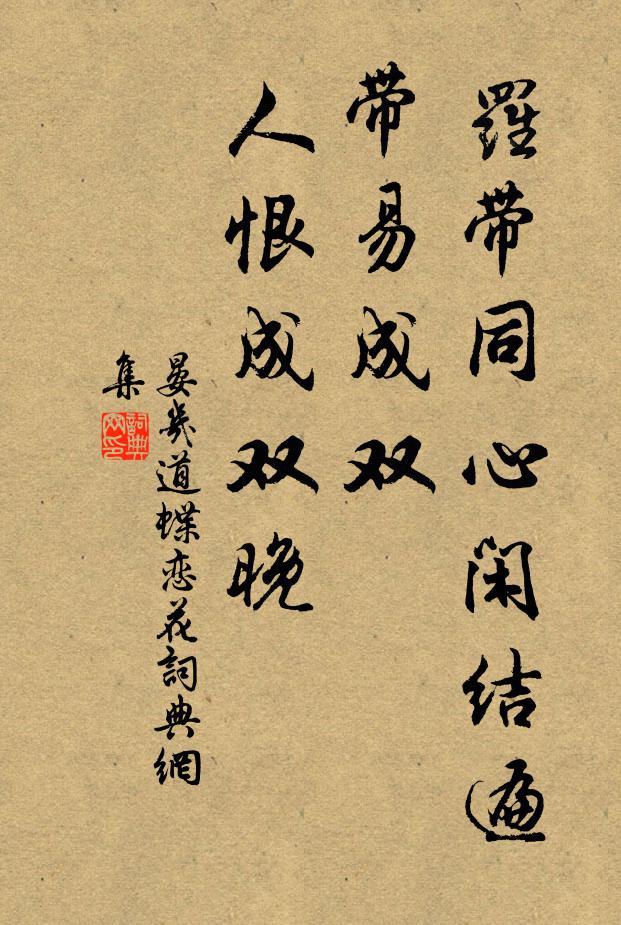 羅带同心闲结遍
带易成双
人恨成双晚
晏幾道蝶恋花詞典網
集
詞典网印